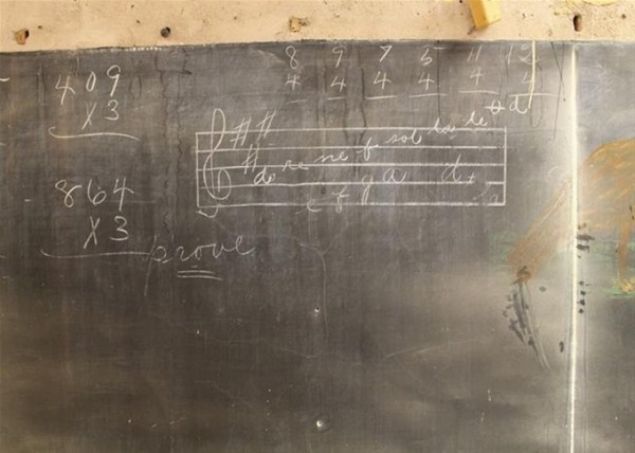 409
X3
864
X3
prove
8 9 7 5 11 12
4 4 4 4 4 4
do re me f sol la te d
e f g a d